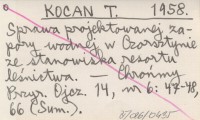 KOCAN T. 1958.
Sprawa projektowanej za-
pory wodnej w Czorsztynie
ze stanowiska resortu
leśnictwa. — Chrońmy
Przyr. Ojcz. 14, nr 6: 47-48,
66 (Sum.).